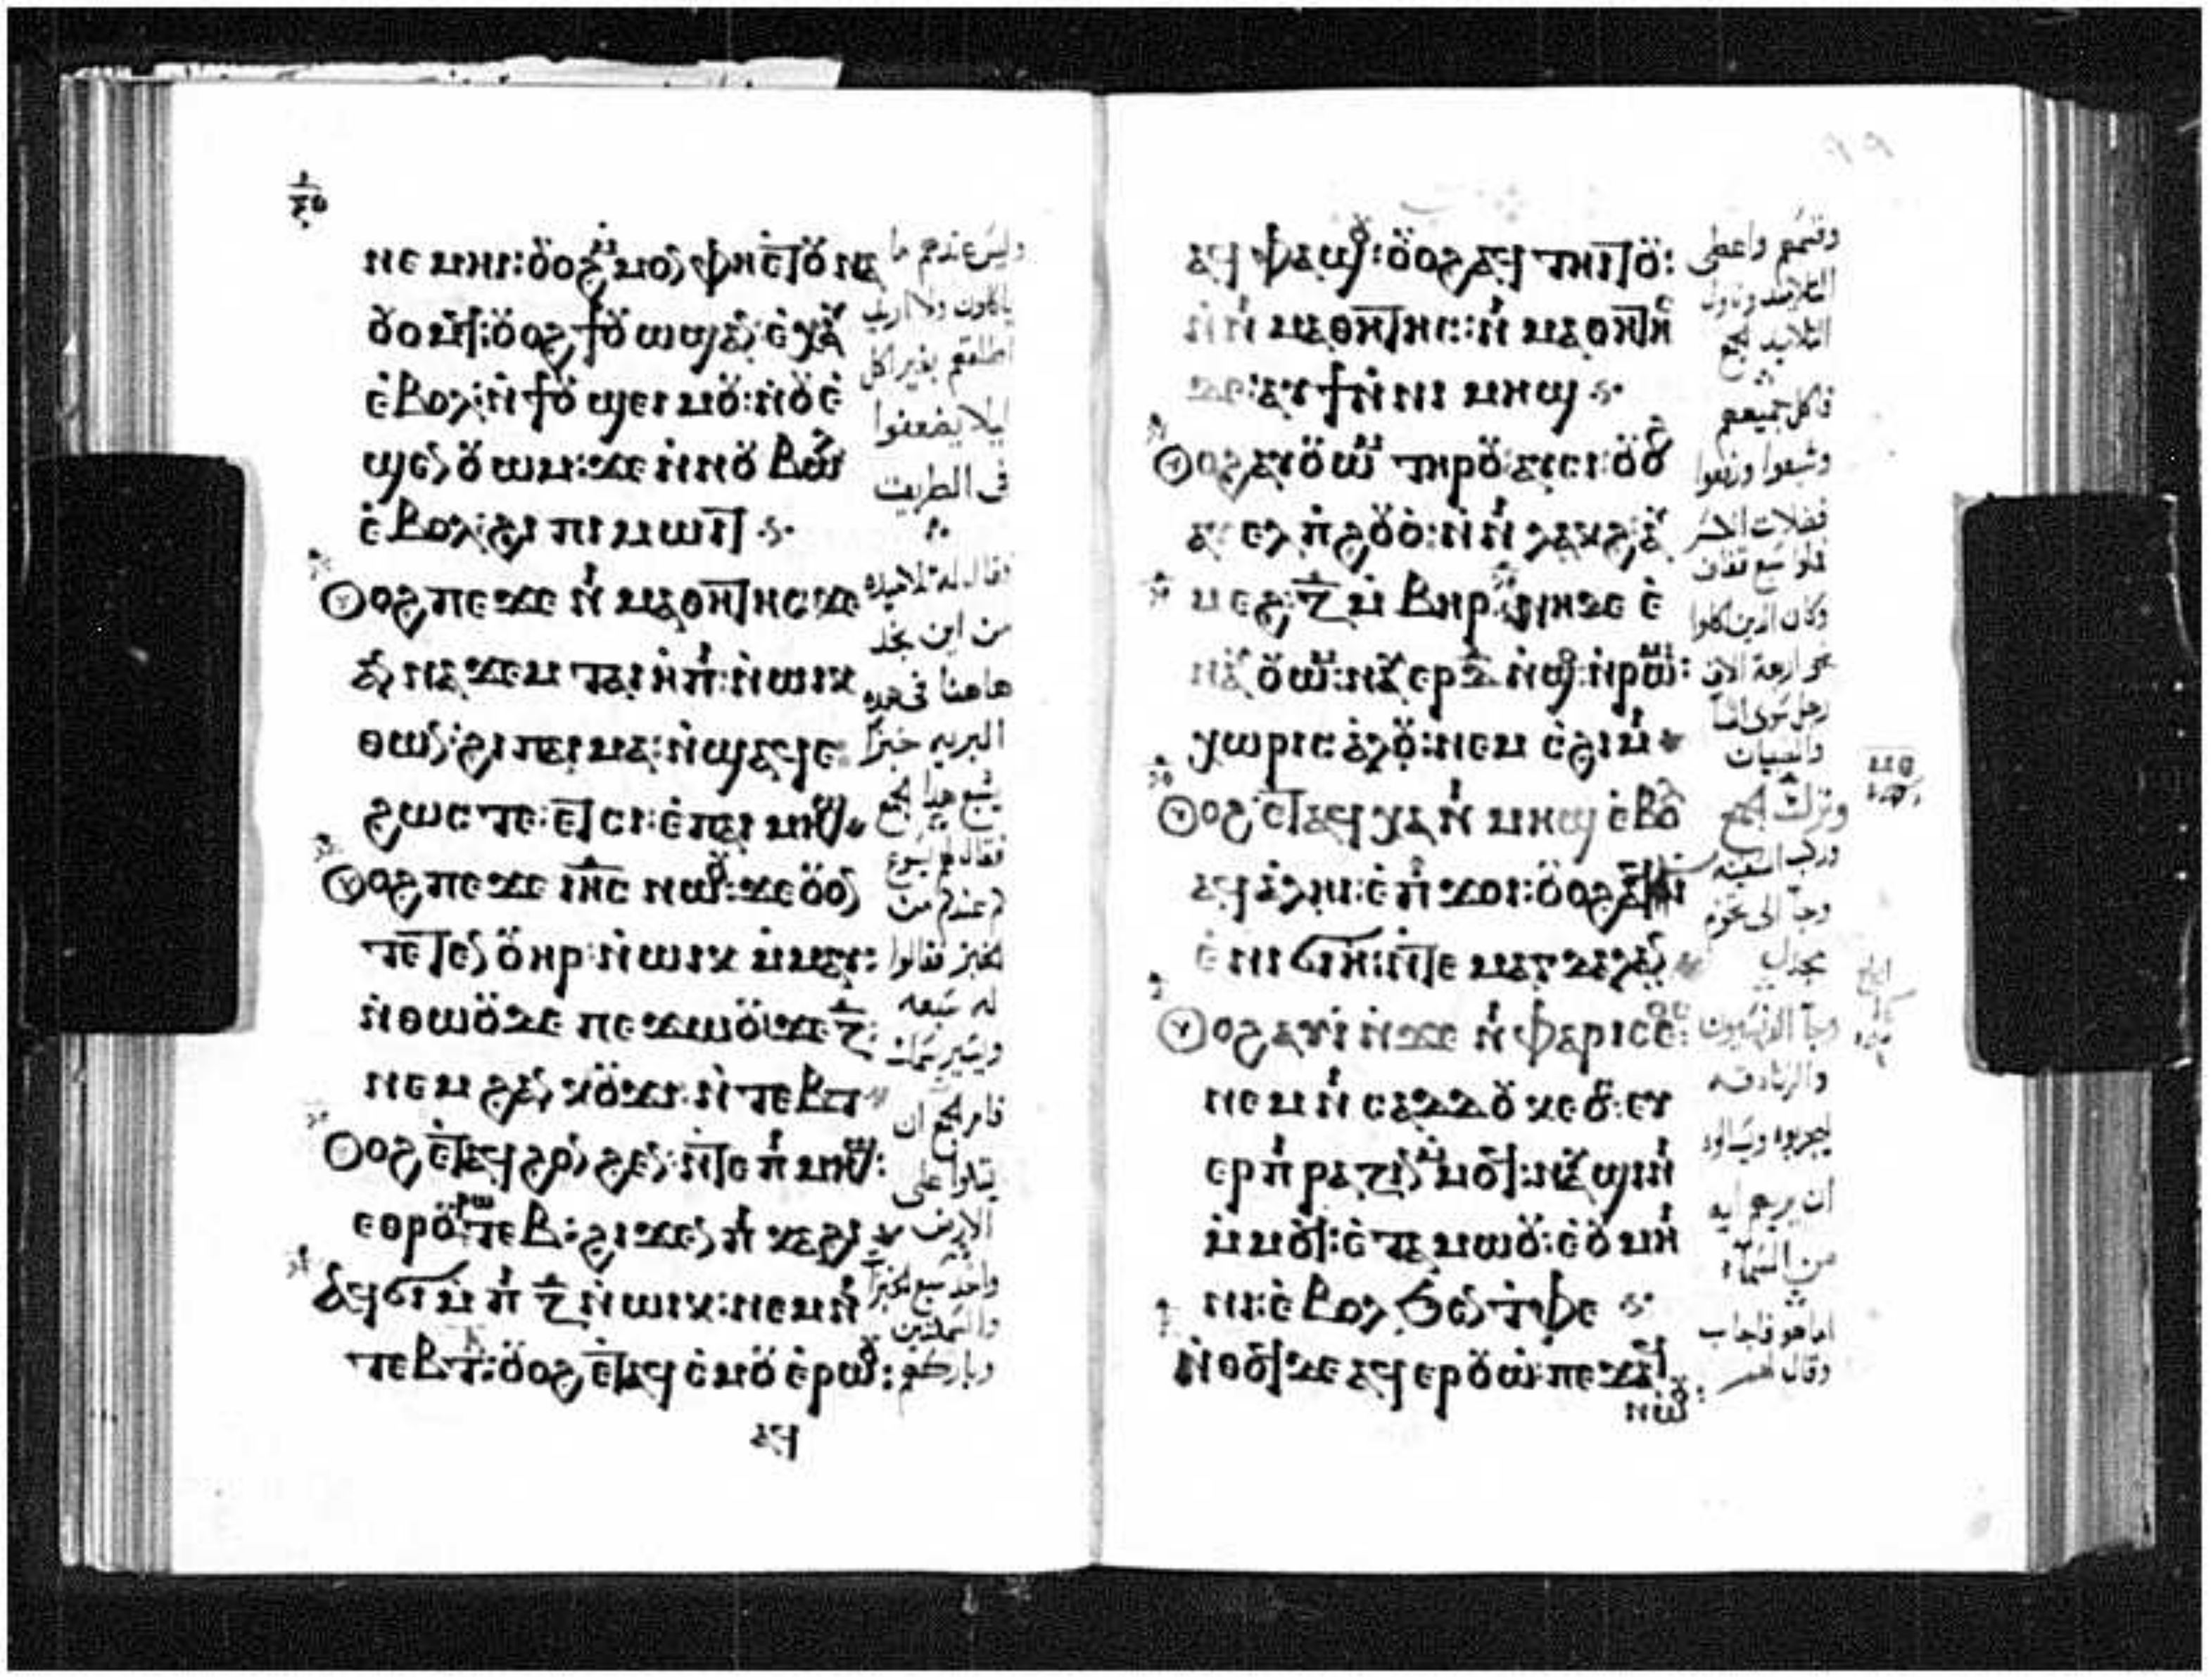 ⲛⲉⲙⲏⲓ:ⲟ̈ⲟϩ ⲙⲟⲛ ⲫⲏⲉⲧⲟ̈ⲛⲁ
ⲟ̈ⲟⲙϥ:ⲟ̈ⲟϩ ϯⲟ̈ⲱϣⲁⲛ ⲉⲭⲁⲩ
ⲉ̇ⲃⲟⲗ:ⲛ̇ϯⲟ̈ ϣⲉⲓ ⲙⲟ̈:ⲛ̇ⲟ̈ⲉ̇
ϣⲉⲛ ⲟ̈ⲱⲙ:ϫⲉ ⲛ̇ⲛⲟ̈ ⲃⲱⲗ
ⲉ̇ⲃⲟⲗ:ϩⲓ ⲡⲓ ⲙⲱⲓⲧ
ⲟⲟϩ ⲡⲉϫⲉ ⲛⲓ ⲙⲁⲑⲏⲧⲏⲥ ϫⲉ
ⲁⲛ ⲛⲁϫⲉⲙ ⲧⲁⲓ ⲏⲡⲓ:ⲛ̇ⲱⲓⲕ
ⲑⲱⲛ:ϩⲓ ⲡⲁⲓ ⲙⲁ:ⲛ̇ϣⲁϥⲉ
ϩⲱⲥ ⲧⲉ:ⲉ̇ⲧⲥⲓ:ⲉ̇ⲡⲁⲓ ⲙⲏϣ
ⲟⲟϩ ⲡⲉϫⲉ ⲓⲏⲥ ⲛⲱⲟ̈:ϫⲉ ⲟ̈ⲟⲛ
ⲧⲉⲧⲉⲛ ⲟ̈ⲏⲣ:ⲛ̇ⲱⲓⲕ ⲙ̇ⲙⲁⲓ:
ⲛ̇ⲑⲱⲟ̈ ⲇⲉ ⲡⲉϫⲱⲟ̈:ϫⲉ ⲍ:
ⲛⲉⲙ ϩⲁⲛ ⲕⲟ̈ϫⲓ ⲛ̇ⲧⲉⲃⲧ
ⲟⲟϩ ⲉ̇ⲧⲁϥ ϩⲟⲛϩⲉⲛ:ⲛ̇ⲧⲉ ⲡⲓ ⲙⲏϣ:
ⲉⲑⲣⲟ̈ⲣⲱⲧⲉⲃ:ϩⲓϫⲉⲛ ⲡⲓ ⲕⲁϩⲓ
ⲁϥϭⲓ ⲙ̇ⲡⲓ ⲍ ⲛ̇ⲱⲓⲕ:ⲛⲉⲙ ⲡⲓ
ⲧⲉⲃⲧ:ⲟ̈ⲟϩ ⲉ̇ⲧⲁϥ ⲥ̇ⲙⲟ̈ ⲉ̇ⲣⲱⲟ̈:
ⲁϥ
وليس عندهم ما
ياكلون ولا اريد
اطلقهم بغير اكل
ليلا يضعفوا
في الطريق
فقال له تلاميذه
من اين نجد
هاهنا في هذه
البريه خبزًا
يشبع هذا الجمع
فقال لهم يسوع
كم عندكم من
الخبز فقالوا
له سبعه
ويسير سمك
فامر الجمع ان
يتكوا على
الارض
واخذ سبع الخبزات
والسمكتين
وباركهم
ⲁϥ ⲫⲁϣⲟ̈:ⲟ̈ⲟϩ ⲁϥ ⲧⲏⲓⲧⲟ̈:
ⲛ̇ⲛⲓ ⲙⲁⲑⲏⲧⲏⲥ:ⲛⲓ ⲙⲁⲑⲏⲧⲏⲥ
ⲇⲉ:ⲁⲩϯ ⲛ̇ⲛⲓ ⲙⲏϣ
ⲟⲟϩ ⲁⲩⲟ̈ⲱⲙ ⲧⲏⲣⲟ̈ ⲁⲩⲥⲓ:ⲟ̈ⲟϩ
ⲁⲩ ⲉⲗ ⲡ̇ϩⲟ̈ⲟ̇:ⲛ̇ⲛⲓ ⲗⲁⲕϩ:ⲁⲩ
ⲙⲉϩ:ⲍ ⲙ̇ⲃⲓⲣ:ⲛⲏ ⲇⲉ ⲉ̇
ⲛⲁⲩ ⲟ̈ⲱⲙ:ⲛⲁⲩⲉⲣ ⲇ ⲛ̇ϣⲟ:ⲛ̇ⲣⲱⲙⲓ:
ⲭⲱⲣⲓⲥ ⲁⲗⲟ̈:ⲛⲉⲙ ⲥ̇ϩⲓⲙⲓ
ⲟⲟϩ ⲉ̇ⲧⲁϥ ⲭⲁ ⲛⲓ ⲙⲏϣ ⲉ̇ⲃⲟⲗ
ⲁϥ ⲁⲗⲏⲓ:ⲉ̇ⲡⲓ ϫⲟⲓ:ⲟ̈ⲟϩ
ⲉ̇ⲛⲓ ϭⲓⲏ:ⲛ̇ⲧⲉ ⲙⲁⲅⲇⲁⲗⲁⲛ
ⲟⲟϩ ⲁⲩⲓ̇ ⲛ̇ϫⲉ ⲛⲓ ⲫⲁⲣⲓⲥⲉⲟⲥ:
ⲛⲉⲙ ⲛⲓ ⲥⲁⲇⲇⲟ̈ⲕⲉⲟⲥ:ⲉⲩ
ⲉⲣⲡⲓⲣⲁⲍⲓⲛ ⲙⲙⲟϥ:ⲛⲁⲩ ϣⲓⲛⲓ
ⲙ̇ⲙⲟϥ:ⲉ̇ⲧⲁⲙⲱⲟ̈:ⲉ̇ⲟ̈ ⲙⲏ
ⲛⲓ:ⲉ̇ⲃⲟⲗ ϧⲉⲛ ⲧ̇ⲫⲉ
ⲛ̇ⲑⲟϥ ⲇⲉ ⲁϥ ⲉⲣⲟ̈ⲱ̇:ⲡⲉϫⲁϥ
ⲛⲱⲟ̈
وقسمهم واعطى
التلاميذ وناول
التلاميذ الجمع
فاكل جميعهم
وشبعوا ورفعوا
فضلات الكسر
وكان الذين اكلوا
نحو اربعة الاف
رجل سوى النسآ
والصبيان
وترك الجمع
وركب السفينه
وجآ الى تخوم
مجدل
وجآ الفريسيون
والزنادقه
ليجربوه وسالوه
ان يريهم ايه
من السمآء
اما هو فاجاب
وقال لهم